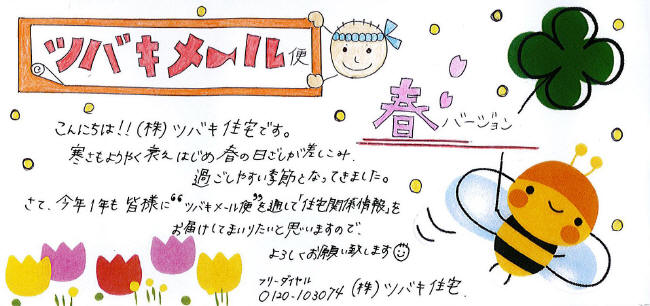 ツバキメール便
春バージョン
こんにちは!! (株)ツバキ住宅です。
寒さもようやく衰えはじめ 春の日ざしが差しこみ、
過ごしやすい季節となってきました。
さて、今年1年も 皆様に“ツバキメール便”を通して「住宅関係情報」を
お届けしてまいりたいと思いますので、
よろしくお願い致します
フリーダイヤル
0120-103074 (株)ツバキ住宅.